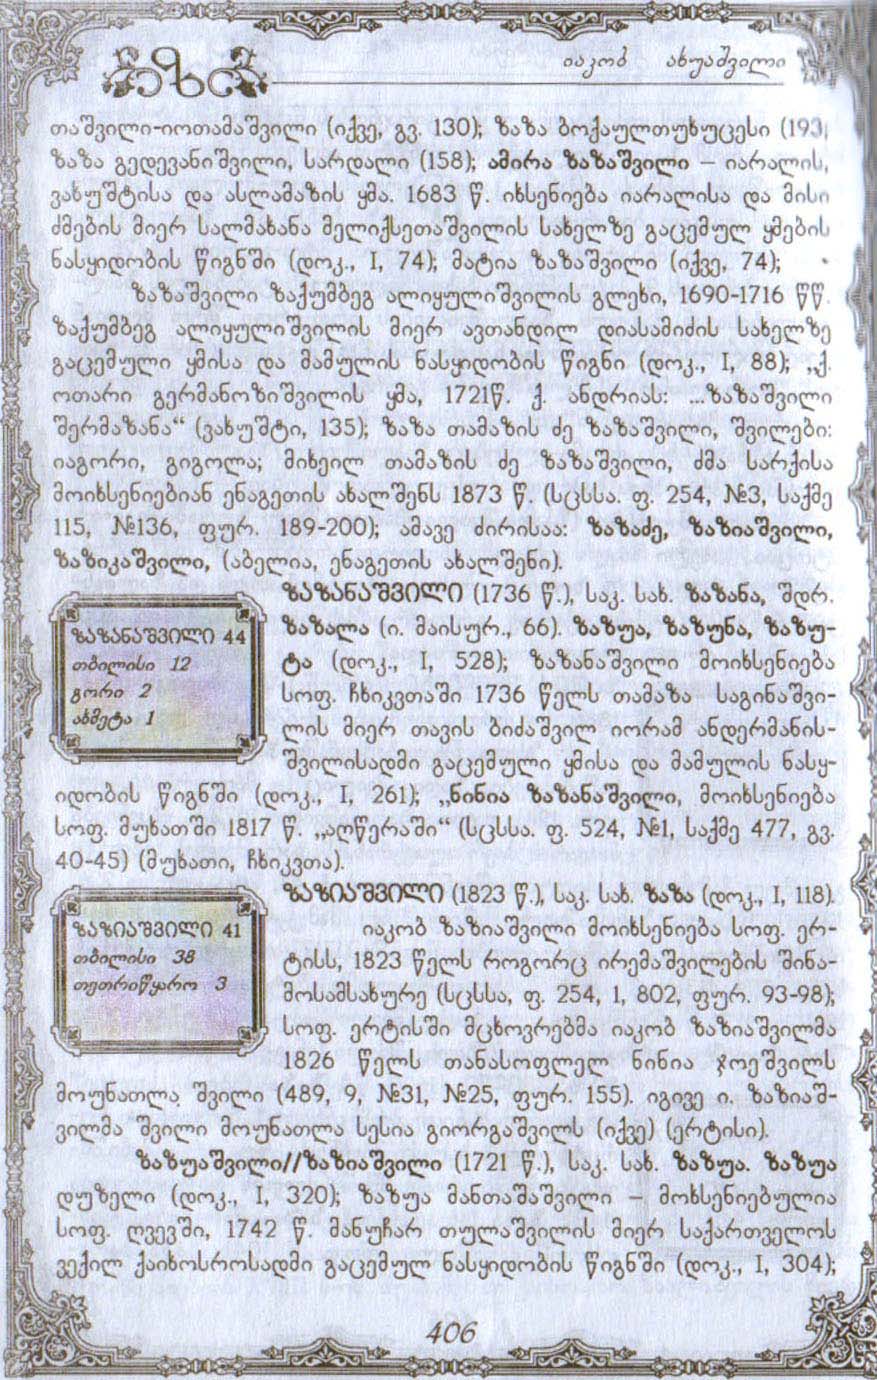 ზა
იაკობ ახუაშვილი
თაშვილი-იოთამაშვილი (იქვე, გვ. 130); ზაზა ბოქაულთუხუცესი (193,
ზაზა გედევანიშვილი, სარდალი (158); ამირა ზაზაშვილი – იარალის,
ვახუშტისა და ასლამაზის ყმა. 1683 წ. იხსენიება იარალისა და მისი
ძმების მიერ სალმახანა მელიქსეთაშვილის სახელზე გაცემულ ყმების
ნასყიდობის წიგნში (დოკ., I, 74); მატია ზაზაშვილი (იქვე, 74);
ზაზაშვილი ზაქუმბეგ ალიყულიშვილის გლეხი, 1690-1716 წწ.
ზაქუმბეგ ალიყულიშვილის მიერ ავთანდილ დიასამიძის სახელზე
გაცემული ყმისა და მამულის ნასყიდობის წიგნი (დოკ., I, 88); „ქ.
ოთარი გერმანოზიშვილის ყმა, 1721წ. ქ. ანდრიას: ...ზაზაშვილი
შერმაზანა“ (ვახუშტი, 135); ზაზა თამაზის ძე ზაზაშვილი, შვილები:
იაგორი, გიგოლა; მიხეილ თამაზის ძე ზაზაშვილი, ძმა სარქისა
მოიხსენიებიან ენაგეთის ახალშენს 1873 წ. (სცსსა. ფ. 254, №3, საქმე
115, №136, ფურ. 189-200); ამავე ძირისაა: ზაზაძე, ზაზიაშვილი,
ზაზიკაშვილი, (აბელია, ენაგეთის ახალშენი).
ზაზანაშვილი (1736 წ.), საკ. სახ. ზაზანა, შდრ.
ზაზალა (ი. მაისურ., 66). ზაზუა, ზაზუნა, ზაზუ-
ტა (დოკ., I, 528); ზაზანაშვილი მოიხსენიება
სოფ. ჩხიკვთაში 1736 წელს თამაზა საგინაშვი-
ლის მიერ თავის ბიძაშვილ იორამ ანდერმანის-
შვილისადმი გაცემული ყმისა და მამულის ნასყ-
იდობის წიგნში (დოკ., I, 261); „ნინია ზაზანაშვილი, მოიხსენიება
სოფ. მუხათში 1817 წ. „აღწერაში“ (სცსსა. ფ. 524, №1, საქმე 477, გვ.
40-45) (მუხათი, ჩხიკვთა).
ზაზანაშვილი 44
თბილისი 12
გორი 2
ახმეტა 1
ზაზიაშვილი (1823 წ.), საკ. სახ. ზაზა (დოკ., I, 118).
იაკობ ზაზიაშვილი მოიხსენიება სოფ. ერ-
ტისს, 1823 წელს როგორც ირემაშვილების შინა-
მოსამსახურე (სცსსა, ფ. 254, 1, 802, ფურ. 93-98);
სოფ. ერტისში მცხოვრებმა იაკობ ზაზიაშვილმა
1826 წელს თანასოფლელ ნინია ჯოეშვილს
მოუნათლა შვილი (489, 9, №31, №25, ფურ. 155). იგივე ი. ზაზიაშ-
ვილმა შვილი მოუნათლა სესია გიორგაშვილს (იქვე) (ერტისი).
ზაზიაშვილი 41
თბილისი 38
თეთრიწყარო 3
ზაზუაშვილი//ზაზიაშვილი (1721 წ.), საკ. სახ. ზაზუა. ზაზუა
დუზელი (დოკ., I, 320); ზაზუა მანთაშაშვილი – მოხსენიებულია
სოფ. ღვევში, 1742 წ. მანუჩარ თულაშვილის მიერ საქართველოს
ვექილ ქაიხოსროსადმი გაცემულ ნასყიდობის წიგნში (დოკ., I, 304);
406